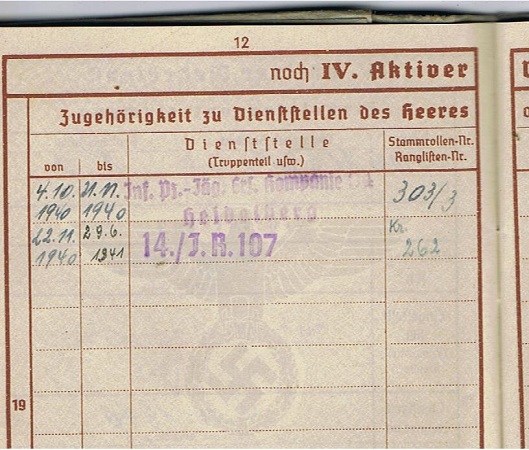 12
noch IV. Aktiver
Zugehörigkeit zu Dienststellen des Heeres
von
bis
Dienststelle
(Truppenteil usw.)
Stammrollen-Nr.
Ranglisten-Nr.
4.10. 21.11. Inf. Pz.-Jäg. Ers. Kompanie 303/3
1940 1940 Heidelberg
22.11. 29.6. 14./J.R. 107 Kr.
1940 1941 262
19